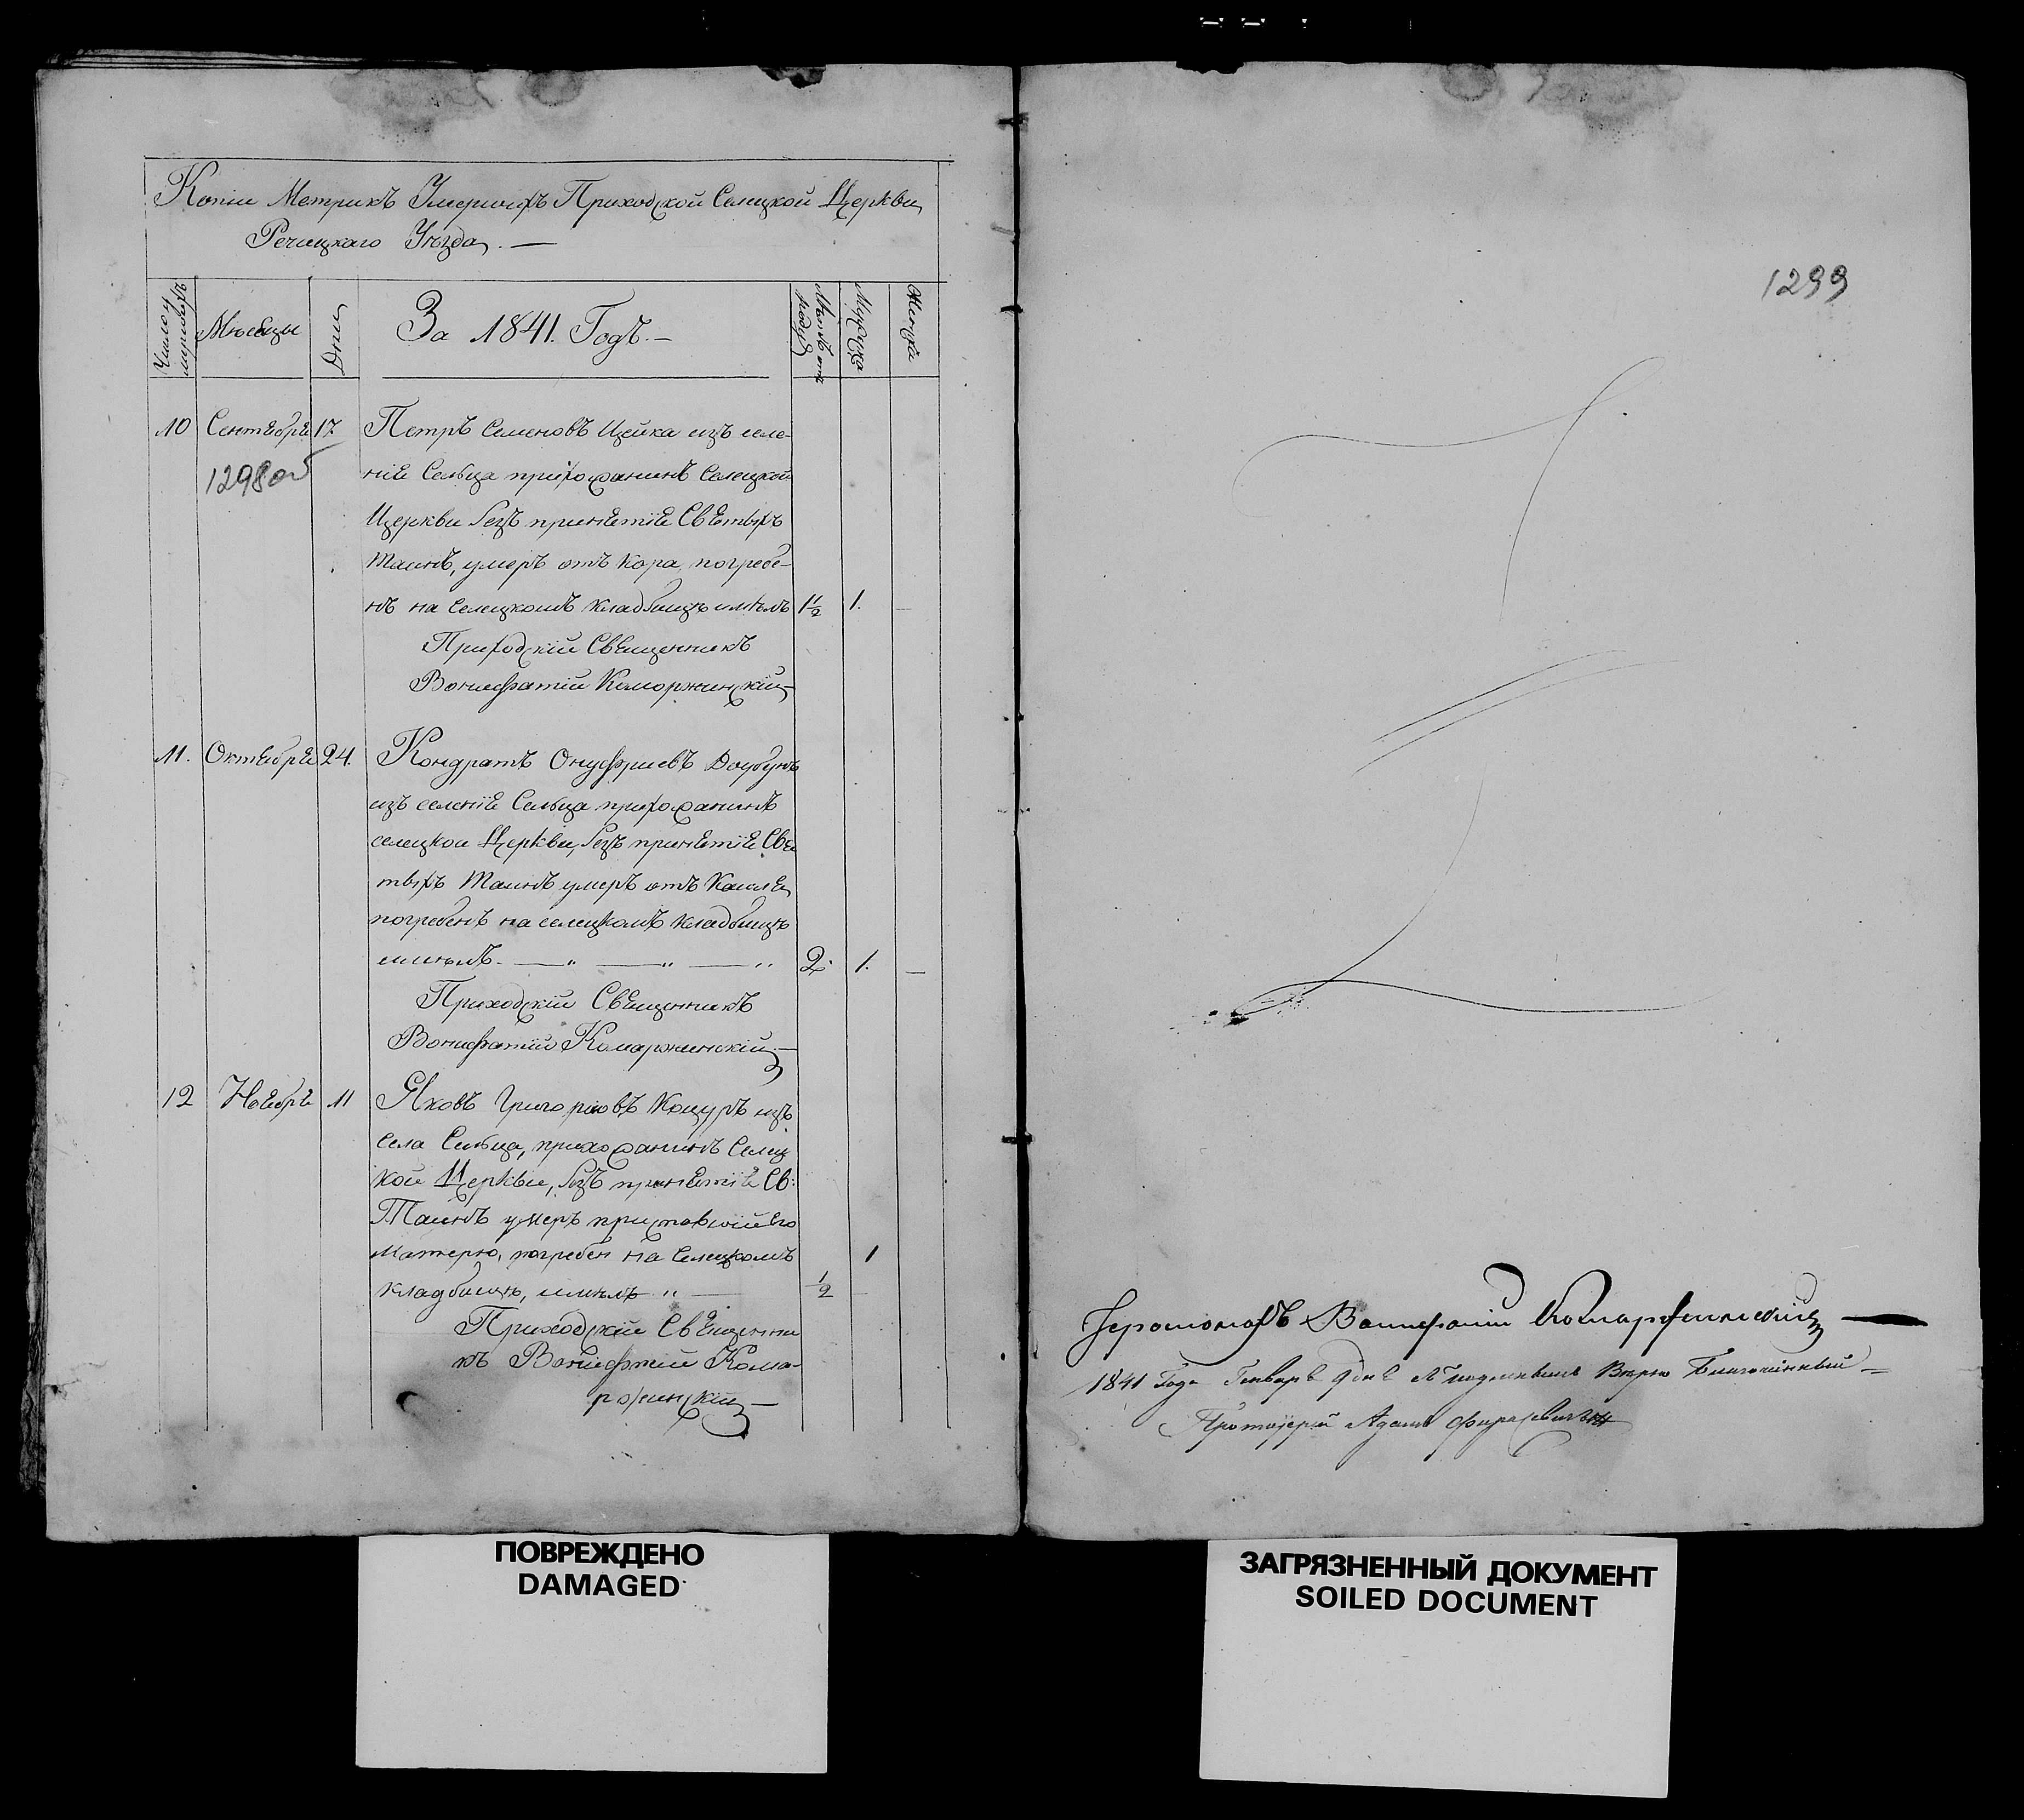 Копіи Метрикъ Умершихъ Приходской Селецкой Церкви
Речицкаго Уѣзда. —
Число умершихъ
Мѣсеци
Дни
За 1841. Годъ. —
Мужеска
Женска
10 Сентебре 17.
Петръ Семеновъ Цейка изъ селе-
1298об
ніе Сельца прихожанинъ Селецкой
Церкви безъ принетіе Светыхъ
Таинъ, умеръ отъ Кора, погребе-
нъ на Селецкомъ Кладбищѣ имѣлъ 1 1/2 1. —
Приходскій Свещенникъ
Вонифатій Коморжинскій —
11. Октебре 24.
Кондратъ Онуфриевъ
изъ селеніе Сельца прихожанинъ
селецкой Церкви, безъ принетіе Све
тыхъ Таинъ умеръ отъ Кашле
погребенъ на селецкомъ Кладбищѣ
имѣлъ. — „ — „ — „ 2. 1. —
Приходскій Свещенникъ
Вонифатій Комаржинскій —
12 Ноебре 11
Яковъ Григориовъ Коцуръ изъ
села Сельца, прихожанинъ Селец
кой Церкви, безъ принетіе Св:
Таинъ умеръ приставшій Его
Матерю, погребен на Селецкомъ 1
кладбищѣ, имѣлъ „ — 1/2 —
Приходскій Свещенни
къ Вонифатій Кома-
ржинскій —
1299
Іеромонахъ Вонифатій Комаржинскій —
1841 Года Генваре 9 дне Благочинный —
Протоіерей Адамъ
ПОВРЕЖДЕНО
DAMAGED
ЗАГРЯЗНЕННЫЙ ДОКУМЕНТ
SOILED DOCUMENT